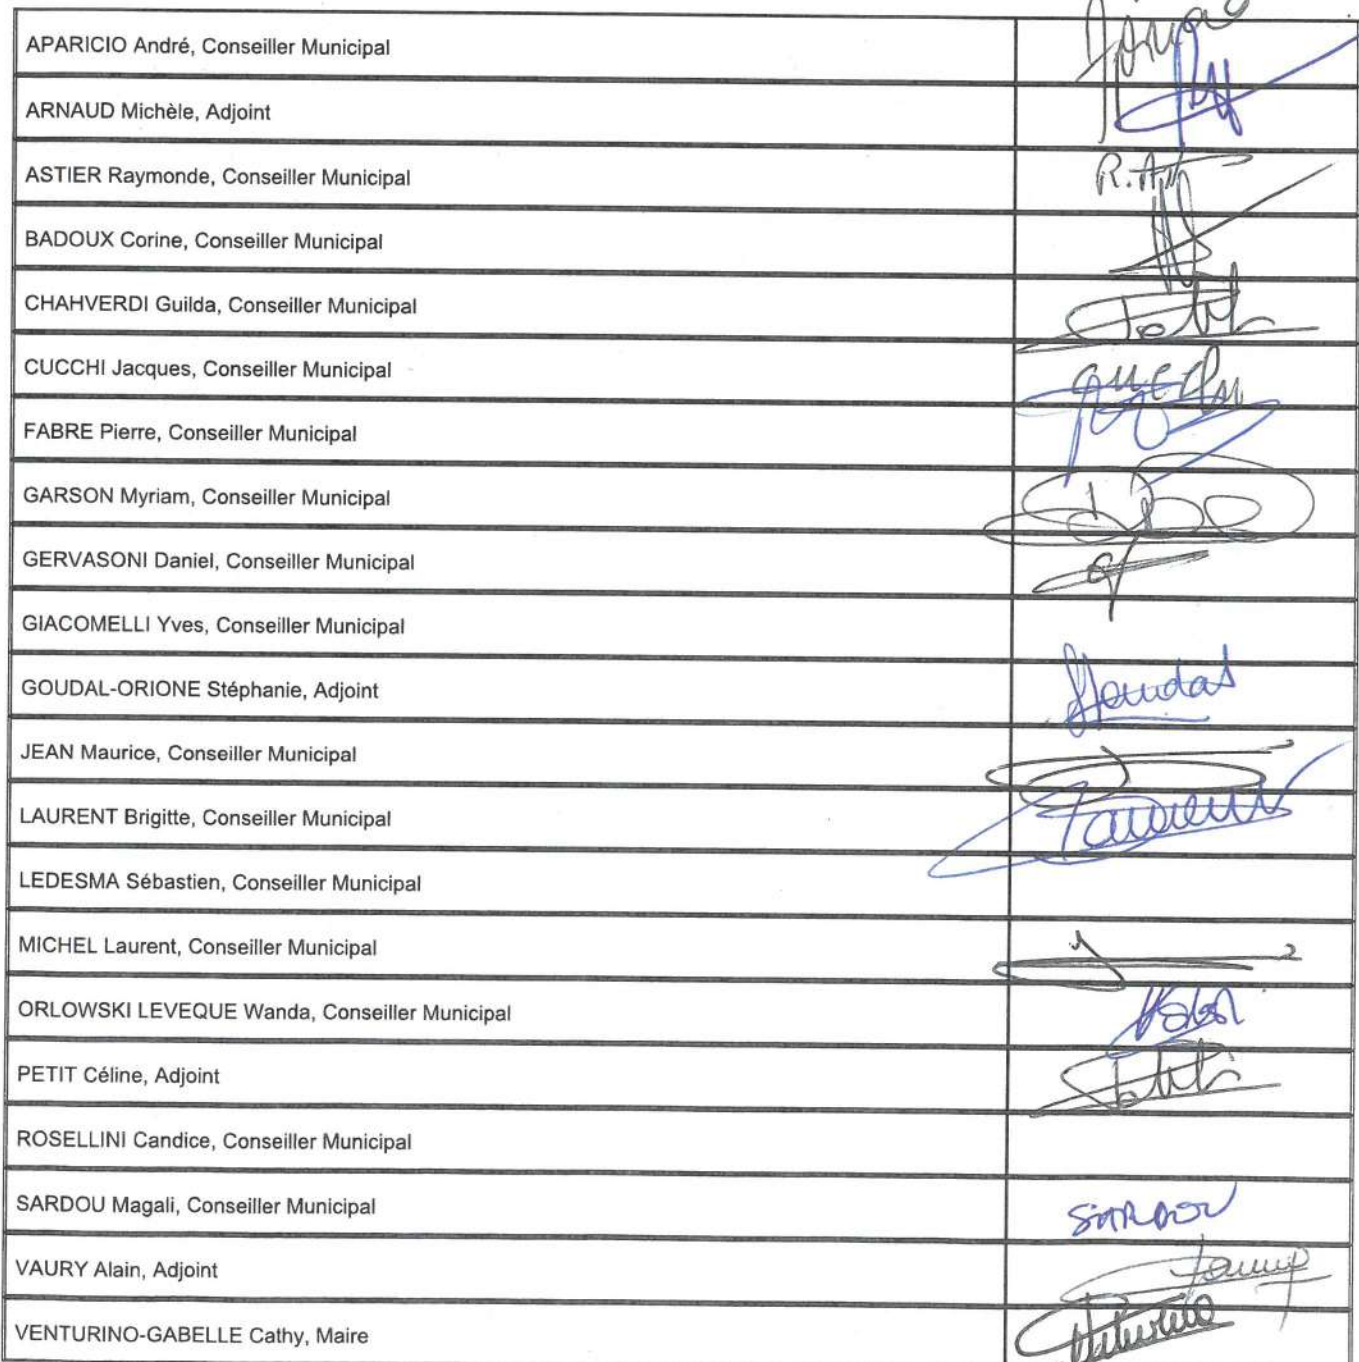 APARICIO André, Conseiller Municipal
ARNAUD Michèle, Adjoint
ASTIER Raymonde, Conseiller Municipal
R.
BADOUX Corine, Conseiller Municipal
CHAHVERDI Guilda, Conseiller Municipal
CUCCHI Jacques, Conseiller Municipal
FABRE Pierre, Conseiller Municipal
GARSON Myriam, Conseiller Municipal
GERVASONI Daniel, Conseiller Municipal
GIACOMELLI Yves, Conseiller Municipal
GOUDAL-ORIONE Stéphanie, Adjoint
JEAN Maurice, Conseiller Municipal
LAURENT Brigitte, Conseiller Municipal
LEDESMA Sébastien, Conseiller Municipal
MICHEL Laurent, Conseiller Municipal
ORLOWSKI LEVEQUE Wanda, Conseiller Municipal
PETIT Céline, Adjoint
ROSELLINI Candice, Conseiller Municipal
SARDOU Magali, Conseiller Municipal SARDOU
VAURY Alain, Adjoint
VENTURINO-GABELLE Cathy, Maire